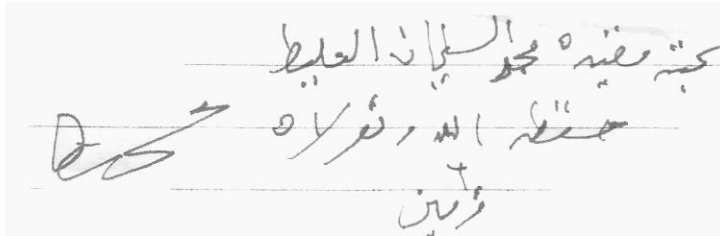 تحية مقيده محمد السليمان العليط
حفظه الله وتولاه
آمين